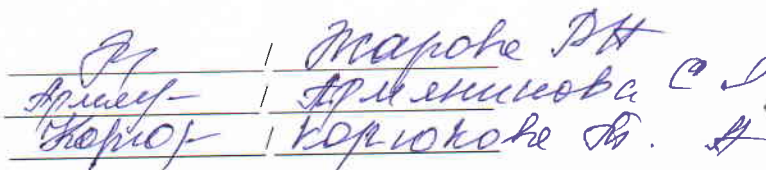 / Жарова РН
Армян- / Армянинова С Я
Корюк- / Корюкова Т. А